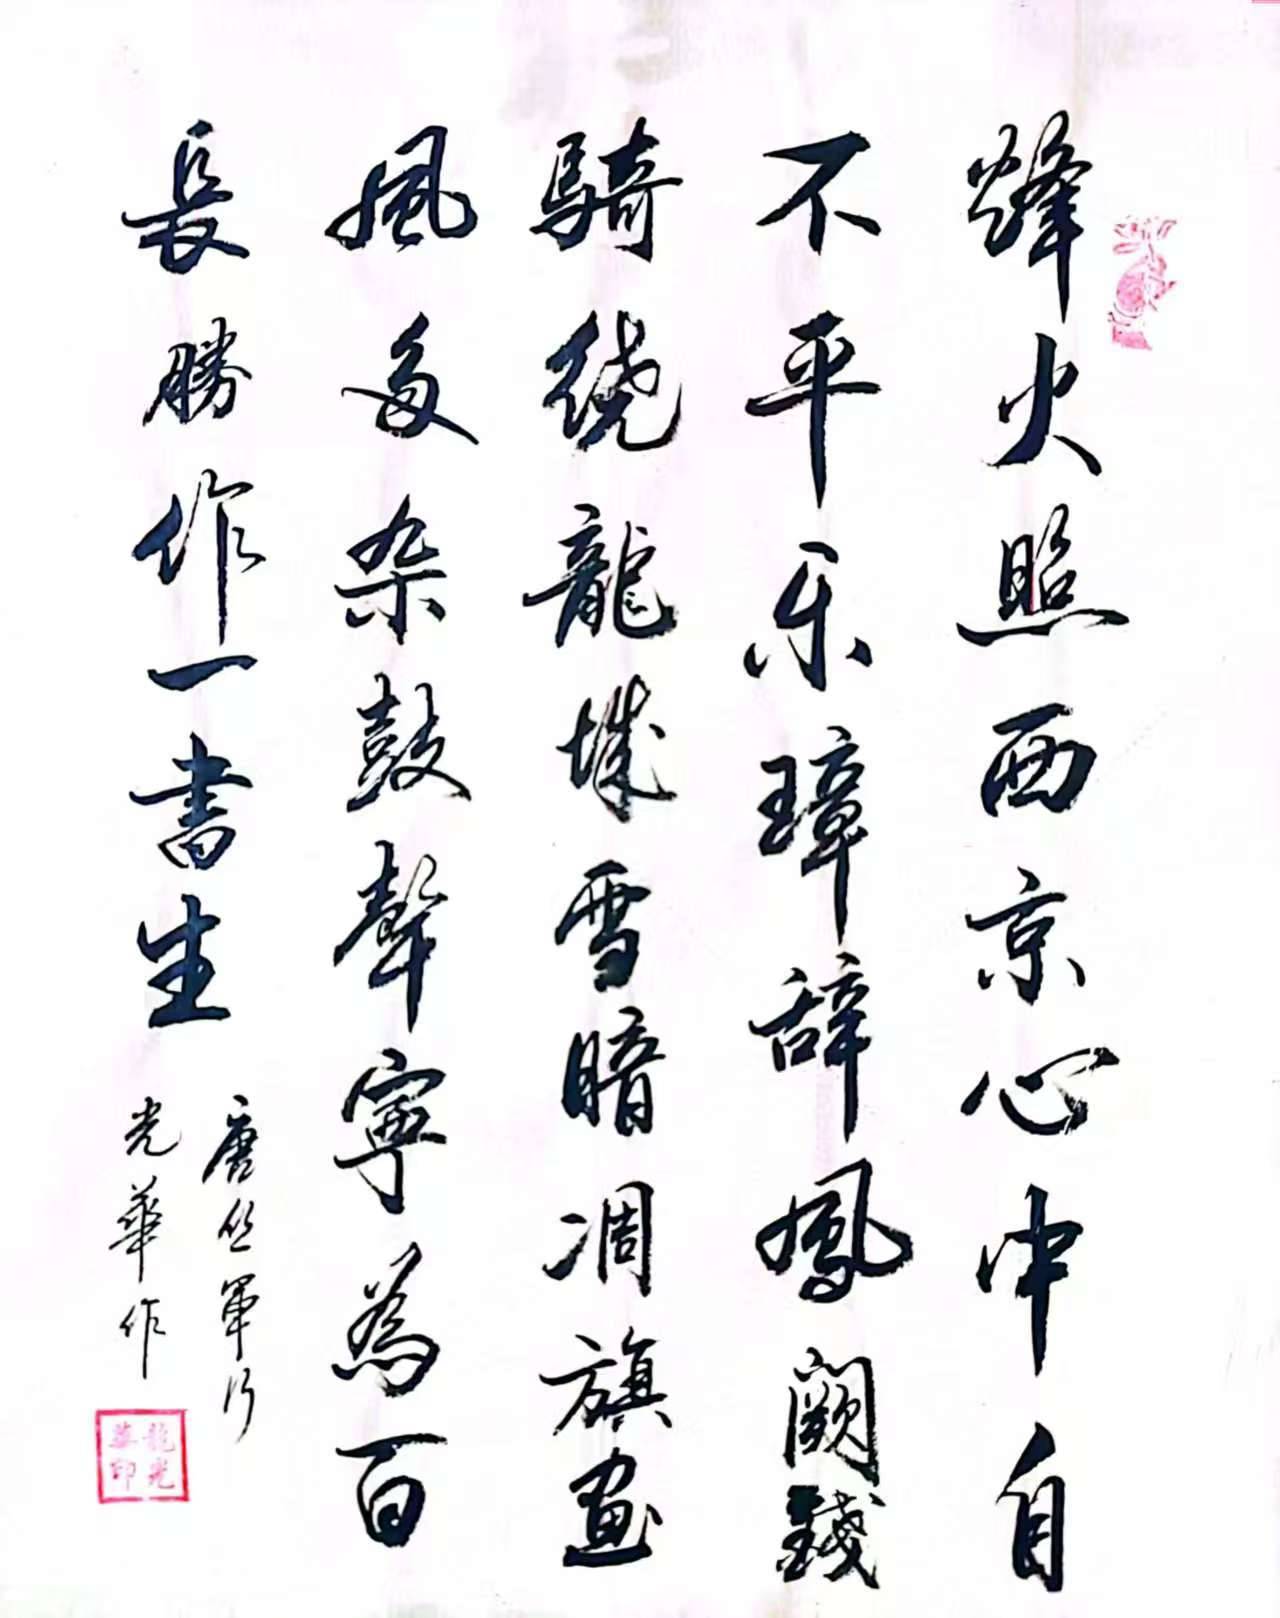 烽火照西京心中自
不平乐璋辞鳳闕錢
騎绕龍城雪暗凋旗画
風多杂鼓聲寧為百
長勝作一書生
唐丛軍行
光華作
龍光華印